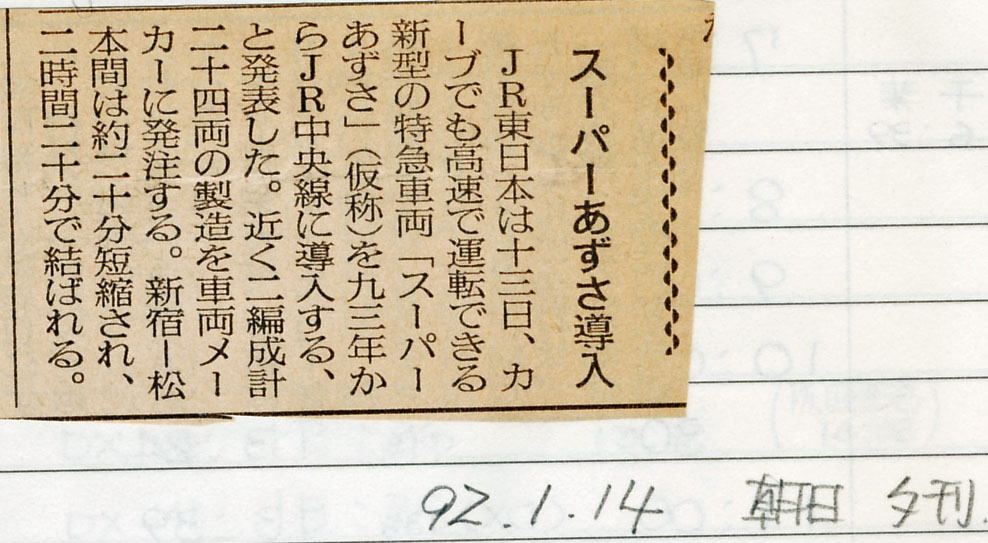 スーパーあずさ導入
JR東日本は十三日、カ
ーブでも高速で運転できる
新型の特急車両「スーパー
あずさ」(仮称)を九三年か
らJR中央線に導入する、
と発表した。近く二編成計
二十四両の製造を車両メー
カーに発注する。新宿ー松
本間は約二十分短縮され、
二時間二十分で結ばれる。
92.1.14 朝日 夕刊.